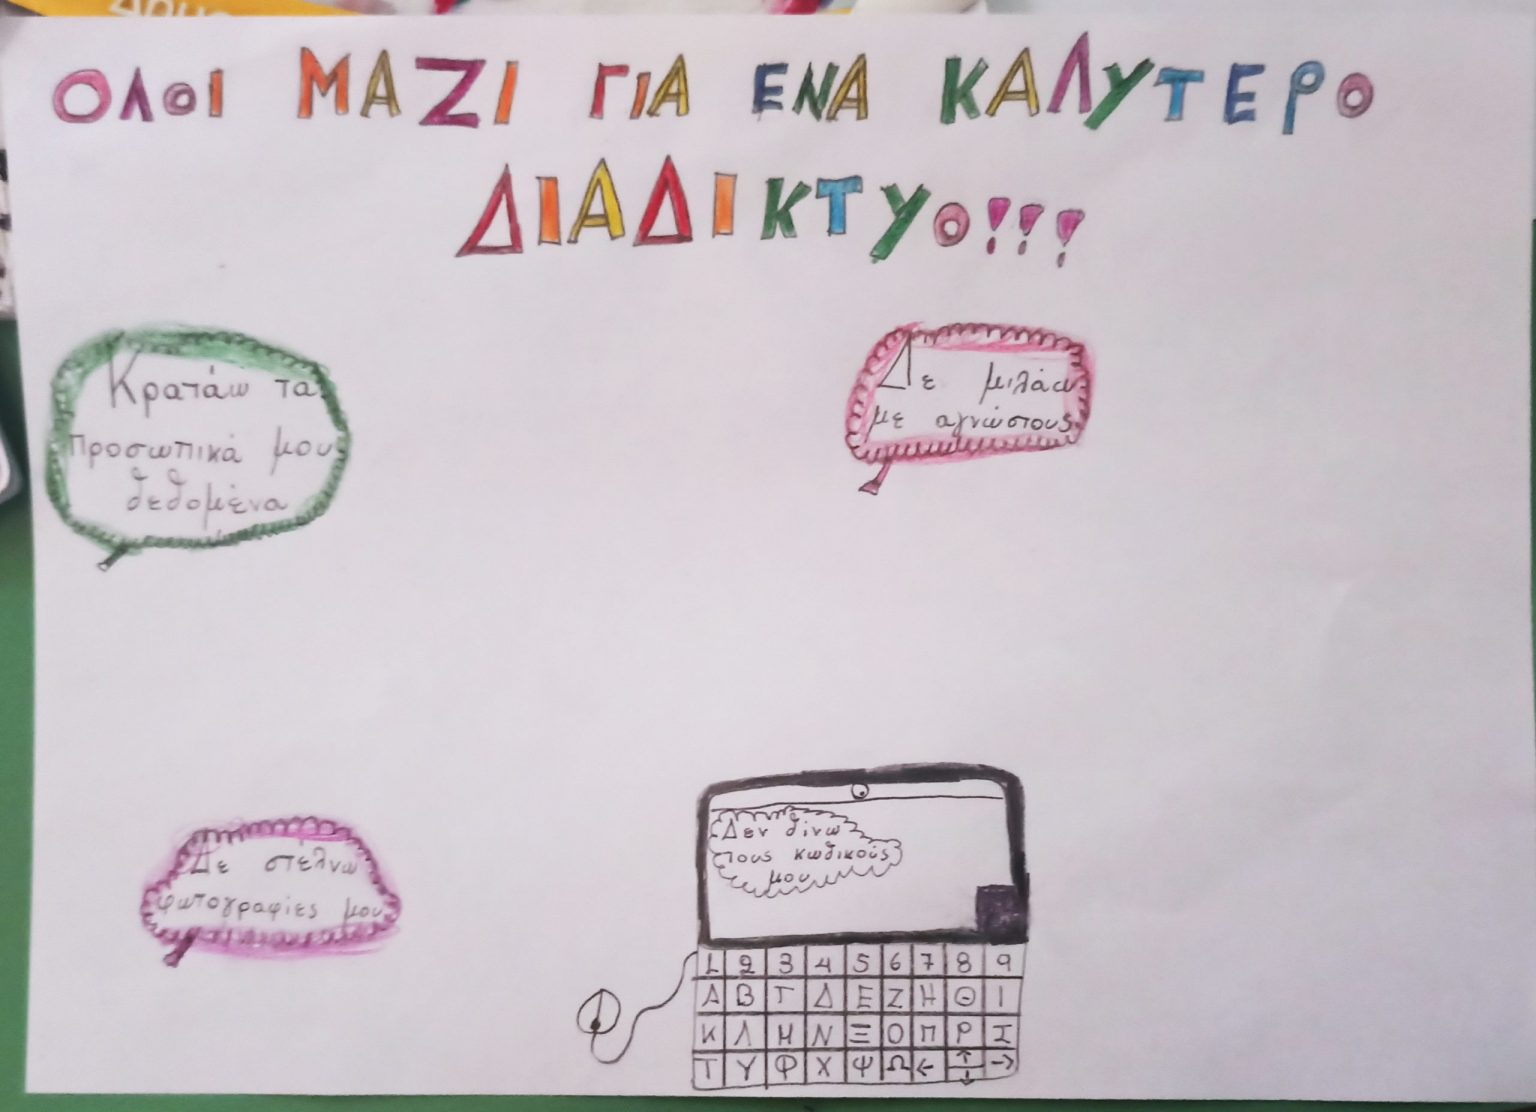 ΟΛΟΙ ΜΑΖΙ ΓΙΑ ΕΝΑ ΚΑΛΥΤΕΡΟ
ΔΙΑΔΙΚΤΥΟ!!!
Κρατάω τα
προσωπικά μου
δεδομένα
Δε μιλάω
με αγνώστους
Δε στέλνω
φωτογραφίες μου
Δεν δίνω
τους κωδικούς
μου
1 2 3 4 5 6 7 8 9
Α Β Γ Δ Ε Ζ Η Θ Ι
Κ Λ Μ Ν Ξ Ο Π Ρ Σ
Τ Υ Φ Χ Ψ Ω ← ↑ ↓ →